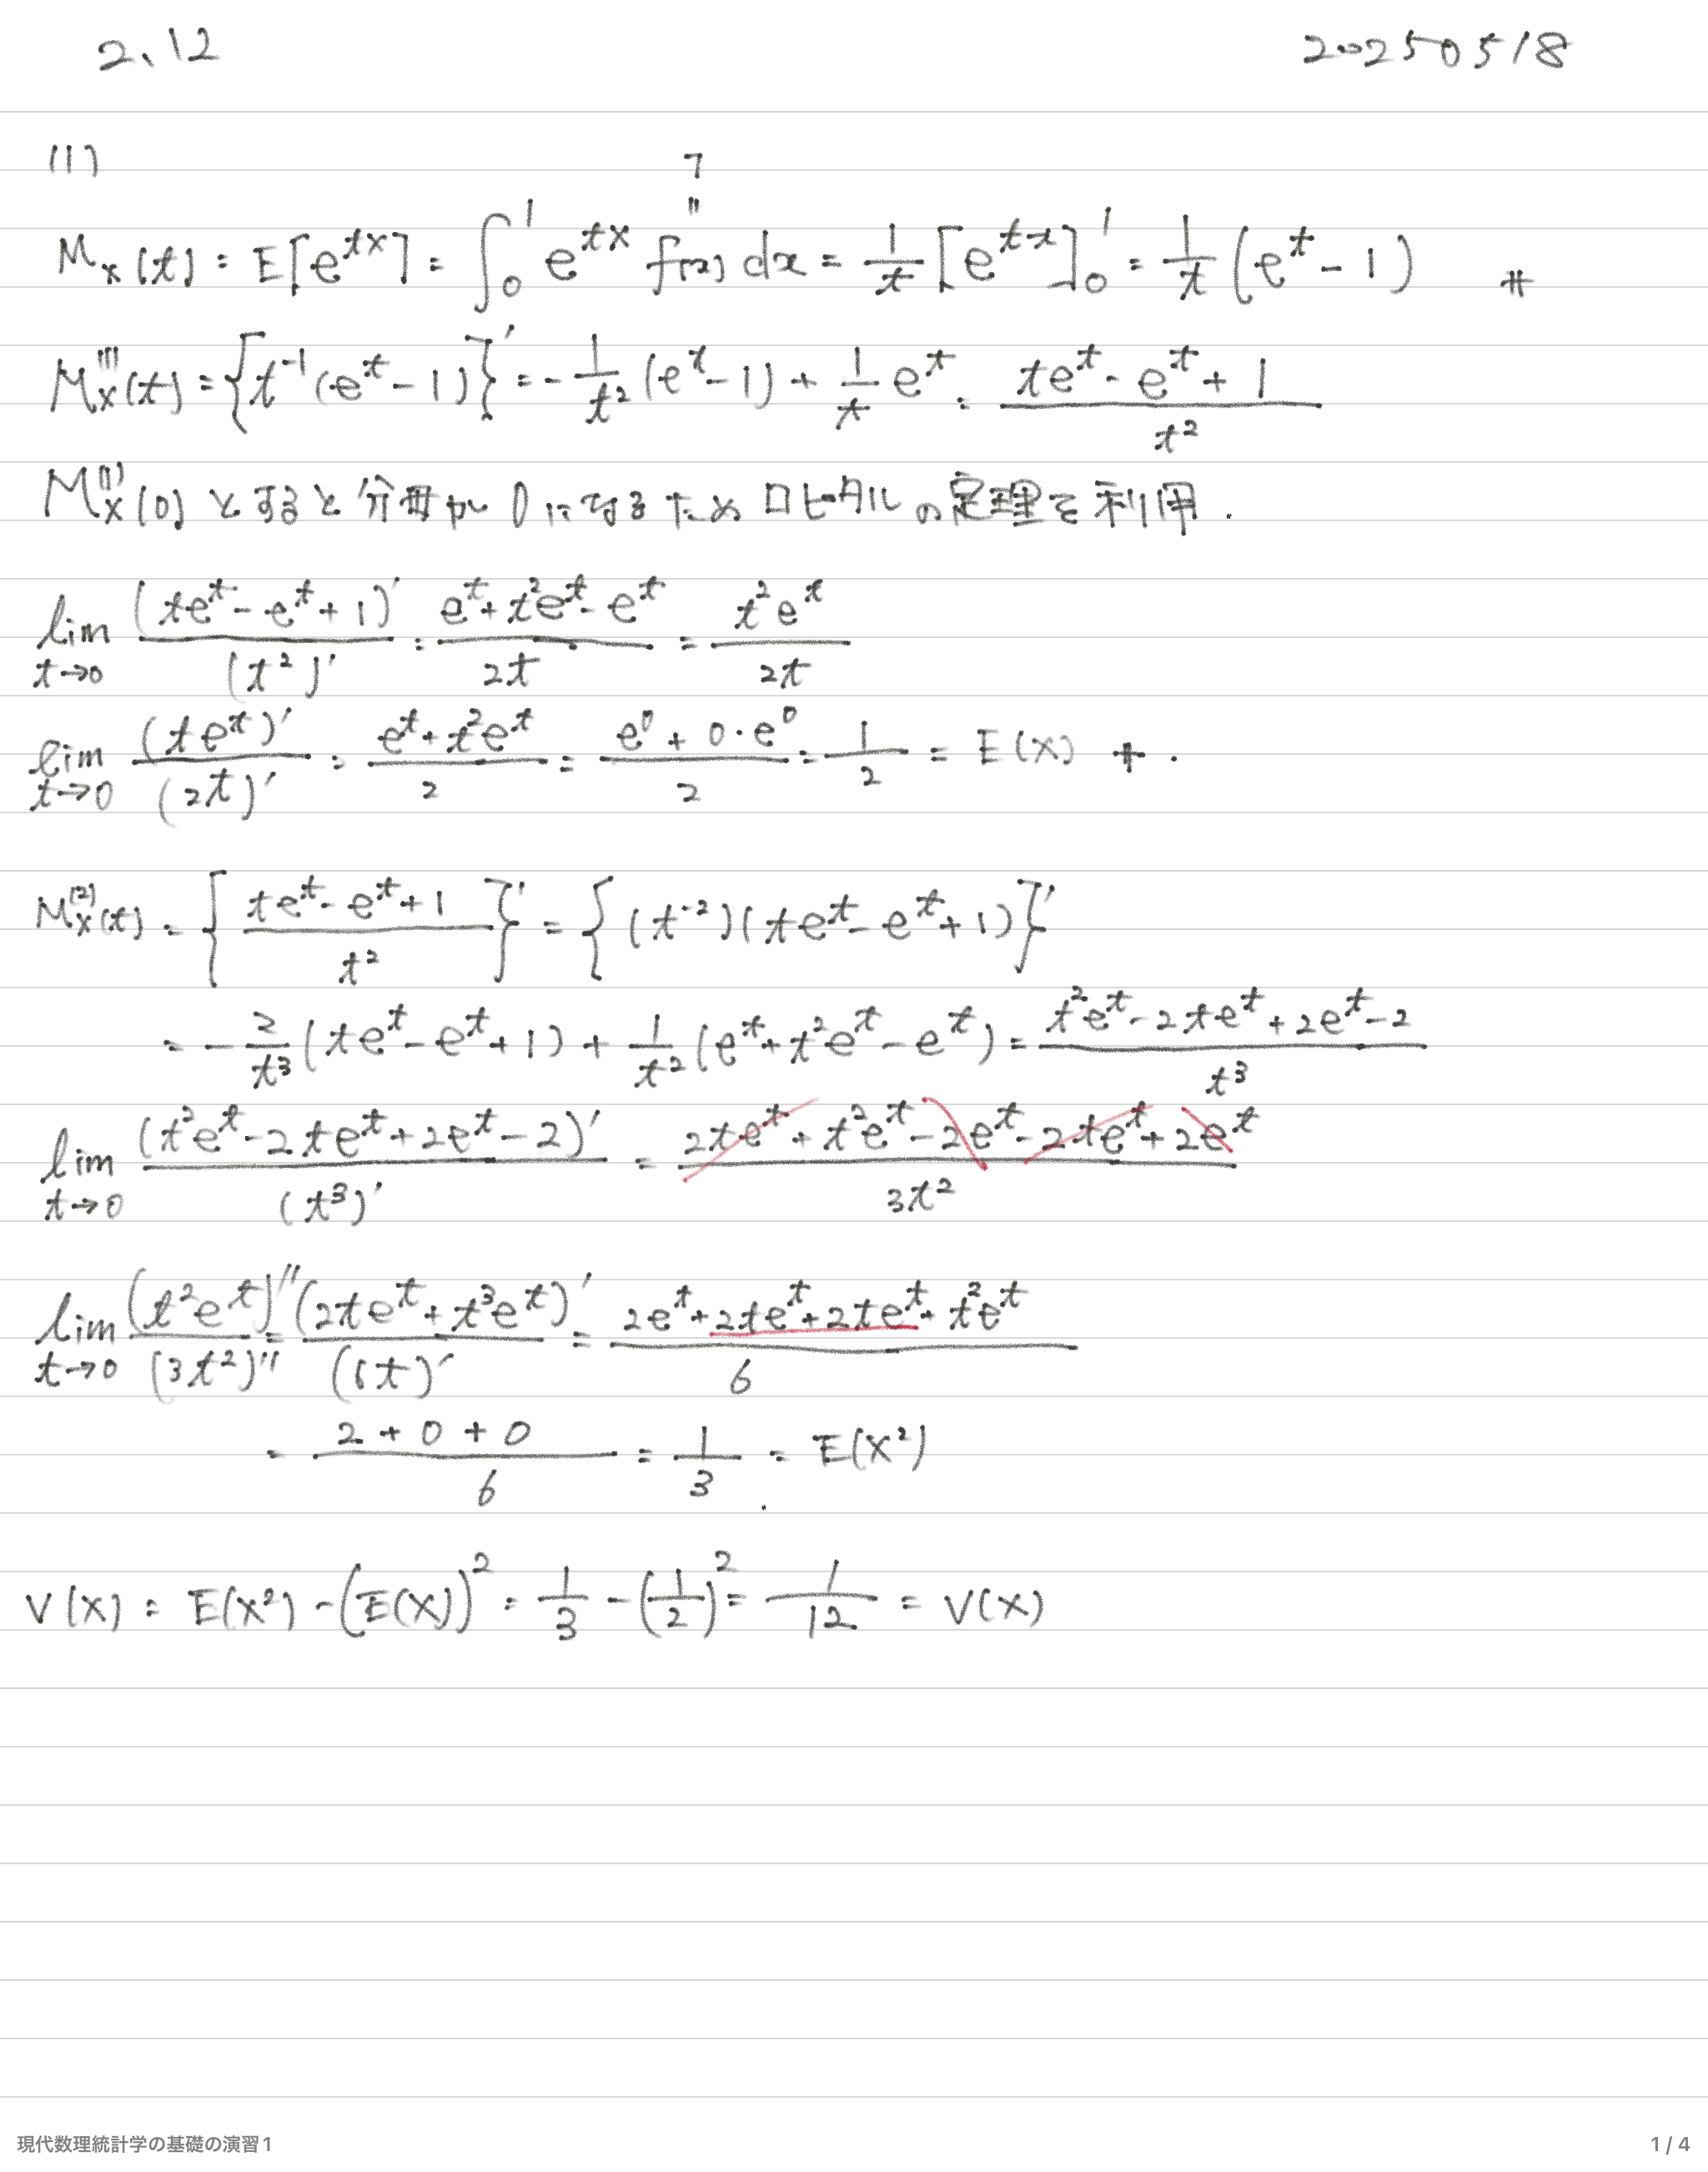 2.12 20250518
(1)
1
"
Mx(t) = E[e^{tX}] = ∫_0^1 e^{tX} f(x) dx = 1/t [e^{tx}]_0^1 = 1/t (e^t - 1) #
M_X^{(1)}(t) = {t^{-1}(e^t - 1)}' = -1/t^2 (e^t - 1) + 1/t e^t = (te^t - e^t + 1)/t^2
M_X^{(1)}(0) とすると分母が0になるためロピタルの定理を利用.
lim_{t→0} (te^t - e^t + 1)'/(t^2)' = (e^t + t^2e^t - e^t)/2t = t^2e^t/2t
lim_{t→0} (te^t)'/(2t)' = (e^t + t^2e^t)/2 = (e^0 + 0・e^0)/2 = 1/2 = E(X) #.
M_X^{(2)}(t) = {(te^t - e^t + 1)/t^2}' = {(t^{-2})(te^t - e^t + 1)}'
= -2/t^3 (te^t - e^t + 1) + 1/t^2 (e^t + t^2e^t - e^t) = (t^2e^t - 2te^t + 2e^t - 2)/t^3
lim_{t→0} (t^2e^t - 2te^t + 2e^t - 2)'/(t^3)' = (2te^t + t^2e^t - 2e^t - 2te^t + 2e^t)/3t^2
lim_{t→0} (t^2e^t)''/(3t^2)'' = (2te^t + t^3e^t)'/(6t)' = (2e^t + 2te^t + 2te^t + t^2e^t)/6
= (2 + 0 + 0)/6 = 1/3 = E(X^2)
V(X) = E(X^2) - (E(X))^2 = 1/3 - (1/2)^2 = 1/12 = V(X)
現代数理統計学の基礎の演習1 1 / 4